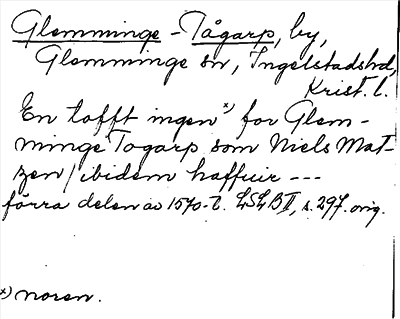 Glemminge - Tågarp, by,
Glemminge sn, Ingelstads hd,
Krist. l.
En tofft ingen x) for Glem-
minge Togarp som Niels Mat-
zen / ibidem haffuir ---
förra delen av 1570-t. LSLB II, s. 297. orig.
x) noren.